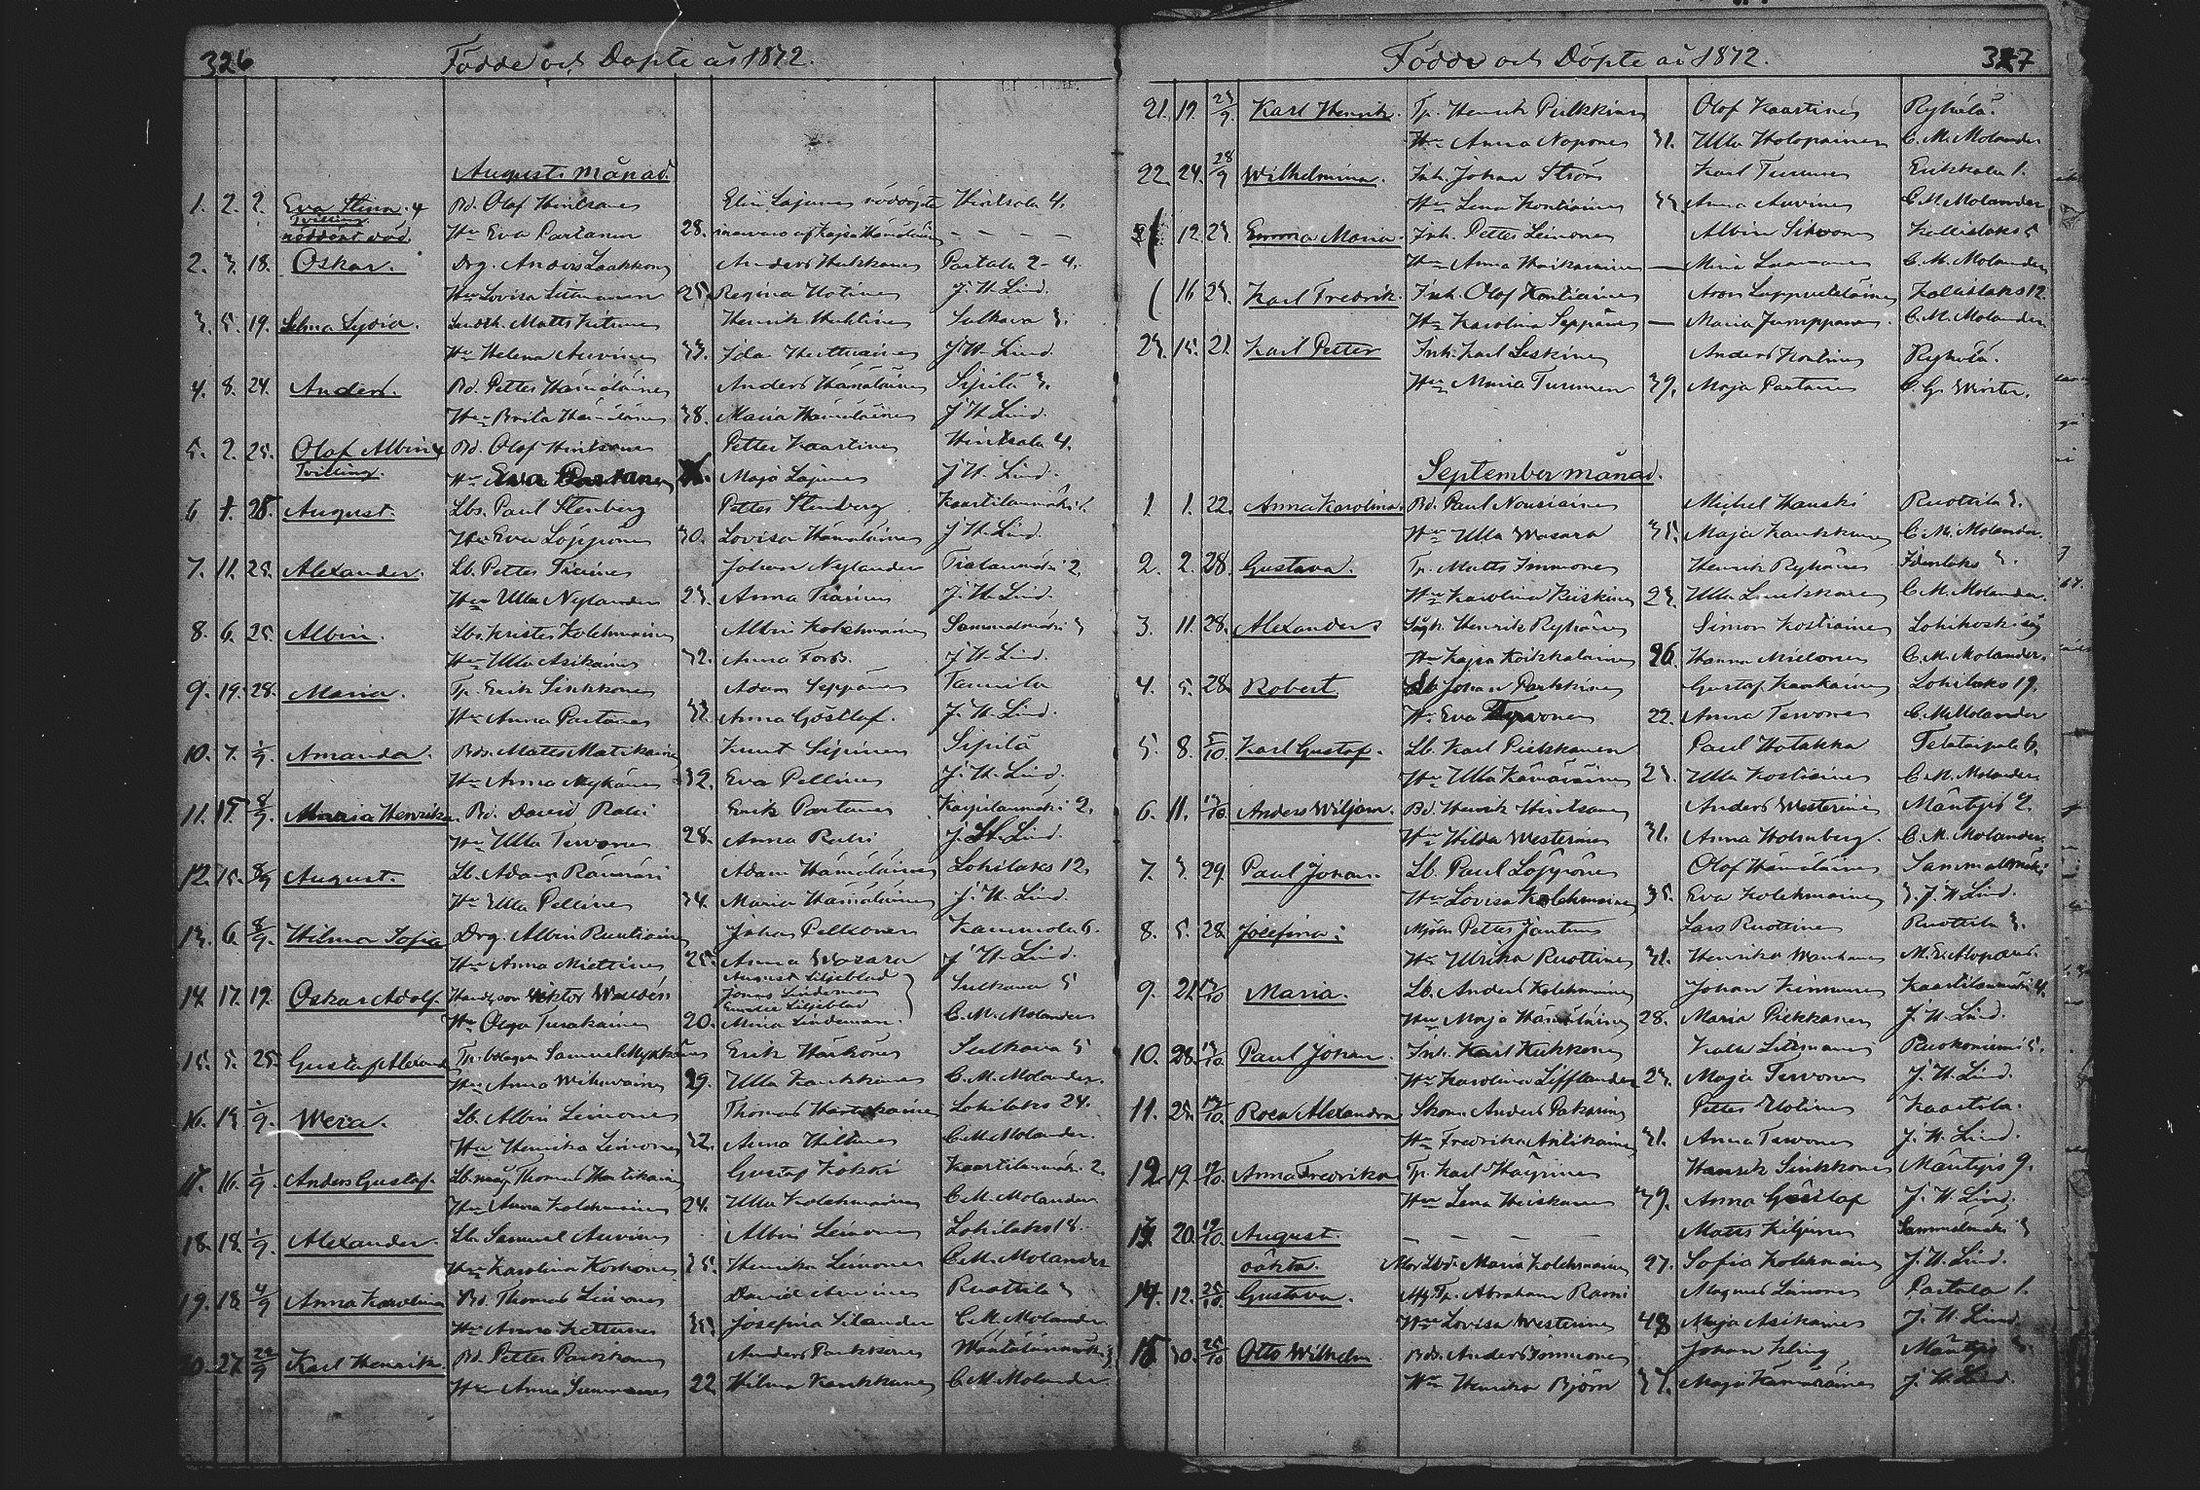 326
Födde och Döpte år 1872.
Augusti månad
1. 2. 2. Eva Stina Bd. Olof Hintsanen Elin Lajunen nöddöpte Hintsala 4.
Tvilling
nöddöpt död. Hu Eva Partanen 28. af Kajsa Hämäläinen - - - -
2. 3. 18. Oskar. Drg. Anders Laukkonen Anders Kukkonen Partala 2-4.
Hu Lovisa 25. Regina Hotinen J. H. Lind.
3. 5. 19. Selma Lydia. Matts Henrik Sulkava 3.
Hu Helena Auvinen 33. Ida J. H. Lind.
4. 8. 24. Anders. Bd. Petter Hämäläinen Anders Hämäläinen Sipilä 3.
Hu Brita Hämäläinen 38. Maria Hämäläinen J. H. Lind.
5. 2. 25. Olof Albin Bd. Olof Hintsanen Petter Kaartinen Hintsala 4.
Tvilling. Hu Eva Partanen Maja Lajunen J. H. Lind.
6 28. August. Lbs. Paul Stenberg Petter Stenberg Kaartilanmäki
Hu Eva Löppönen 30. Lovisa Hämäläinen J. H. Lind.
7. 11. 25. Alexander. Lb. Petter Tiainen Johan Nylander Tiatanmäki 2
Hu Ulla Nylander 23. Anna Tiainen J. H. Lind.
8. 6. 25. Albin. Lbs. Krister Kolehmainen Albin Kolehmainen Sammalmäki 3
Hu Ulla Asikainen 32. Anna Forss. J. H. Lind.
9. 19. 28. Maria. Tp. Erik Sinkkonen Adam Seppänen Tannila
Hu Anna Partanen 33. Anna Göstlof. J. H. Lind.
10. 7. 1/9. Amanda. Bds. Matts Matikainen Knut Sipinen Sipilä
Hu Anna Nykänen 32. Eva Pellinen J. H. Lind.
11. 15. 8/9. Maria Henrika. Bd. David Rabi Erik Partanen 2.
Hu Ulla Tervonen 28. Anna Rabi J. H. Lind.
12. 15. 8/9 August. Lb. Adam Rämäri Adam Hämäläinen Lohilaks 12.
Hu Ulla Pellinen 34. Maria Hämäläinen J. H. Lind.
13. 6. 8/9. Hilma Sofia Drg. Albin Ruotiainen Johan Pelkonen Kammola 6.
Hu Anna Miettinen 25. Anna Wasara J. H. Lind.
14. 17. 19. Oskar Adolf. Viktor Walldén August Liljeblad Sulkava 5
Jonas Lindeman
Emelie Liljeblad
Hu Olga Turakainen 20. Mina Lindeman C. M. Molander
15. 5. 25. Gustaf Alexand. Tp. bolagsm Samuel Nykkänen Erik Härkönen Sulkava 5
Hu Anna Wihavainen 29. Ulla Kaukkinen C. M. Molander.
16. 14 1/9. Wera. Lb. Albin Leinonen Thomas Hartikainen Lohilaks 24.
Hu Henrika Leinonen 32. Anna Hiltunen C. M. Molander.
17. 16. 1/9 Anders Gustaf. Lb.måg Thomas Hartikainen Gustaf Kokki Kaartilanmäki 2.
Hu Anna Kolehmainen 24. Ulla Kolehmainen C. M. Molander
18. 18. 1/9. Alexander. Lb. Samuel Auvinen Albin Leinonen Lohilaks 18.
Hu Karolina Korhonen 35. Henrika Leinonen C. M. Molander
19. 18 4/9 Anna Karolina Bd. Thomas Leinonen David Auvinen Ruottila 3
Hu Anna Kettunen 33. Josefina Silander C. M. Molander
20. 27. 22/9 Karl Henrik. Bd. Petter Parkkonen Anders Parkkonen
Hu Anna Summanen 22. Hilma Kaukkanen C. M. Molander.
Födde och Döpte år 1872. 327
21. 19. 23/9. Karl Henrik. Tp. Henrik Pulkkinen Olof Kaartinen Ryhälä.
Hu Anna Noponen 31. Ulla Holopainen C. M. Molander
22. 24. 28/9 Wilhelmina. Inh. Johan Ström Karl Turunen Erikkala 1.
Hu Lena Kontiainen 33. Anna Auvinen C. M. Molander
12. 23. Emma Maria. Inh. Petter Leinonen Albin Sihvonen Kallislaks 5
Hu Anna — C. M. Molander
16 23. Karl Fredrik. Inh. Olof Kontiainen Aron Lappveteläinen Kallislaks 12.
Hu Karolina Seppänen — Maria Jumppanen. C. M. Molander
23. 15. 21. Karl Petter Inh. Karl Leskinen Anders Kontinen Ryhälä.
Hu Maria Turunen 39. Maja Partanen C. G. Winter.
September månad.
1. 1. 22. Anna Karolina. Bd. Paul Nousiainen Michel Hauski Ruottila 3.
Hu Ulla Wasara 35. Maja Kaukkanen C. M. Molander.
2. 2. 28. Gustava. Tp. Matts Immonen Henrik Ryhänen Idenlaks 3.
Hu Karolina Kiiskinen 23. Ulla C. M. Molander.
3. 11. 28. Alexander. Henrik Ryhänen Simon Kostiainen Lohikoski
Hu Kajsa Koikkalainen 26. Hanna Mielonen C. M. Molander.
4. 5. 28. Robert Lb Johan Parkkinen Gustaf Kaukainen Lohilaks 19.
Hu Eva Tervonen 22. Anna Tervonen C. M. Molander
5. 8. 5/10. Karl Gustaf. Lb. Karl Pirkkanen Paul Hotakka Telataipale 6.
Hu Ulla Kämäräinen 23. Ulla Kostiainen C. M. Molander
6. 11. 13/10. Anders Wiljam. Bd. Henrik Hintsanen Anders Westerinen Mäntyis 2.
Hu Hilda Westerinen 31. Anna Holmberg. C. M. Molander
7. 3. 29. Paul Johan. Lb. Paul Löppönen Olof Hämäläinen Sammalmäki
Hu Lovisa Kolehmainen 35. Eva Kolehmainen 3. J. H. Lind.
8. 5. 28. Josefina. Mjöln. Petter Jäntunen Lars Ruottinen Ruottila 3.
Hu Ulrika Ruottinen 31. Henrika Wanhanen M. E.
9. 21. 13/10 Maria. Lb. Anders Kolehmainen Johan Kinnunen Kaartilanmäki 4.
Hu Maja Hämäläinen 28. Maria Pirkkanen J. H. Lind.
10. 28. 13/10. Paul Johan. Inh. Karl Kukkonen Ruokoniemi 5.
Hu Karolina Lifflander 23. Maja Tervonen J. H. Lind.
11. 25. 13/10. Rosa Alexandra Skom. Anders Pakarinen Petter Hotinen Kaartila.
Hu Fredrika Antikainen 31. Anna Tervonen J. H. Lind.
12. 19. 19/10. Anna Fredrika Tp. Karl Häyrinen Henrik Sinkkonen Mäntyis 9.
Hu Lena Heiskanen 39. Anna Göstlof J. H. Lind.
13. 20. 19/10. August. - - - - Matts Kiljunen Sammalmäki 3
oäkta. Mor Maria Kolehmainen 27. Sofia Kolehmainen J. H. Lind.
14. 12. 25/10. Gustava. Tp. Abraham Rami Magnus Leinonen Partala 1.
Hu Lovisa Westerinen 48 Maja Asikainen J. H. Lind.
15. 30. 25/10 Otto Wilhelm. Bds. Anders Immonen Johan Kling Mäntyis 3.
Hu Henrika Björn 37. Maja Kämäräinen J. H. Lind.